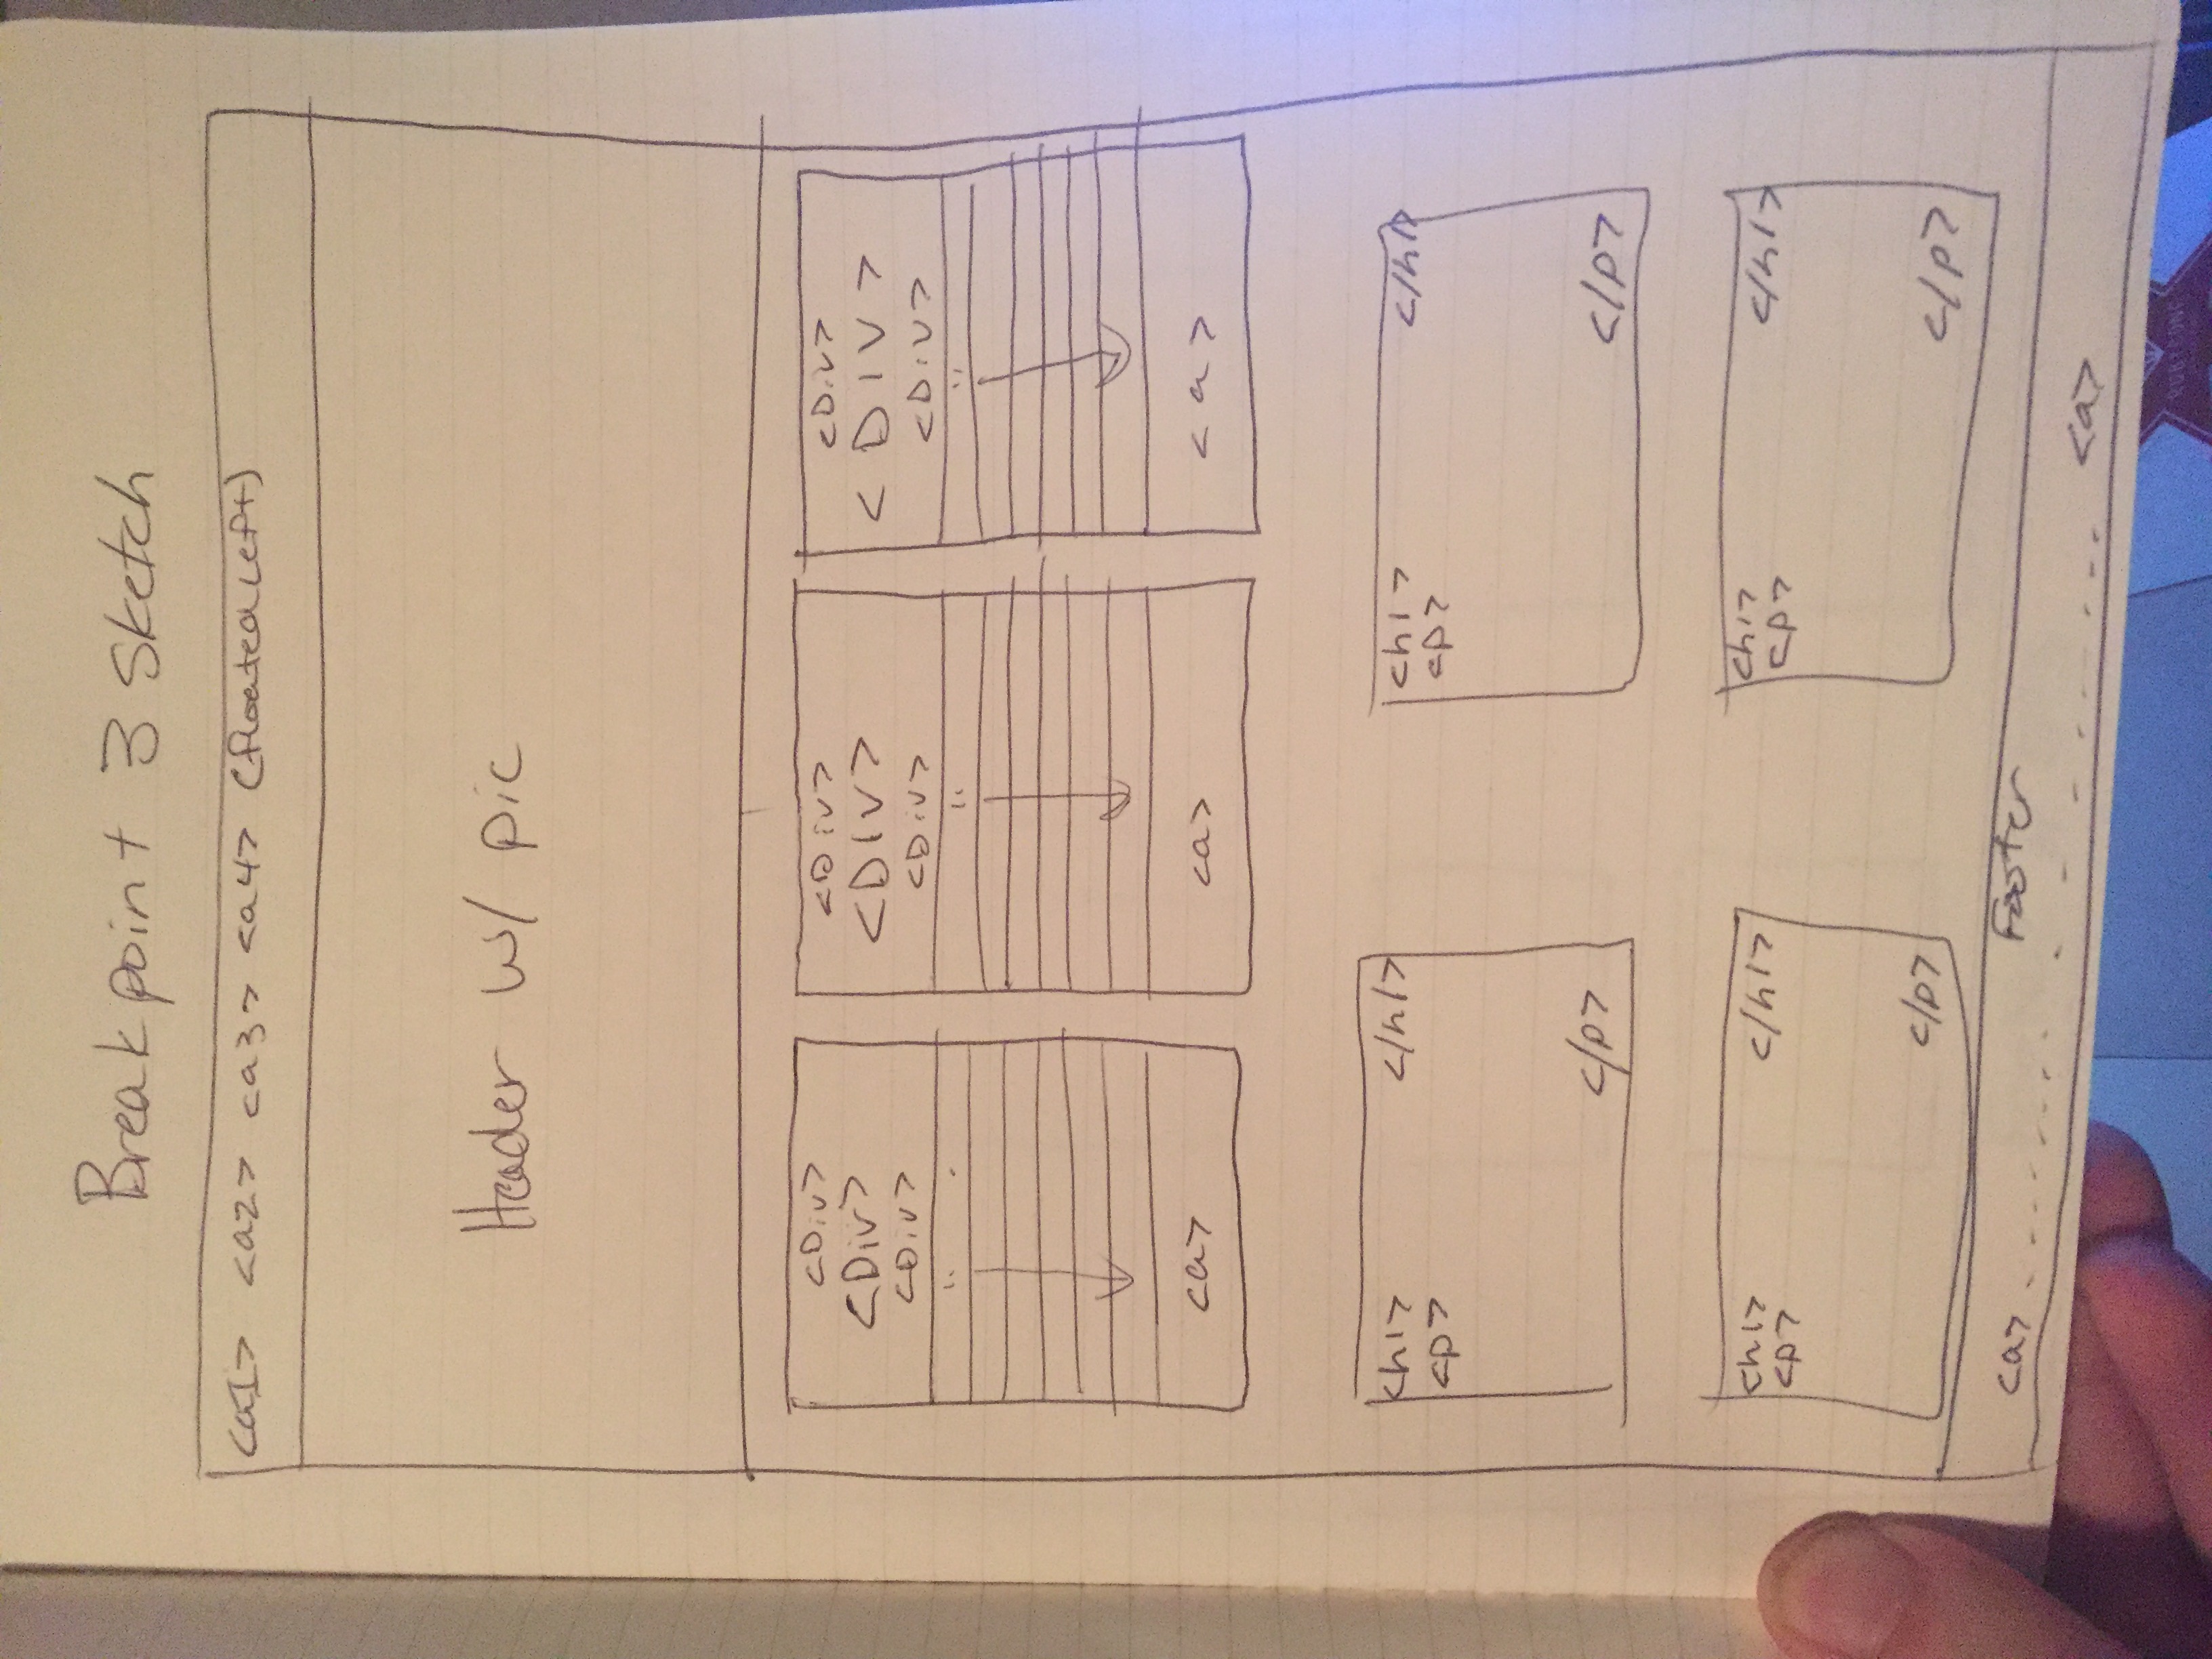 Breakpoint 3 Sketch
<a1> <a2> <a3> <a4> (floated left)
Header w/ pic
<Div> <Div> <Div>
<Div> <DIV> <DIV>
<Div> <Div> <Div>
<a> <a> <a>
<h1> </h1> <h1> </h1>
<p> <p>
</p> </p>
<h1> </h1> <h1> </h1>
<p> <p>
</p> </p>
<a> Footer
<a>
RUBYCONF